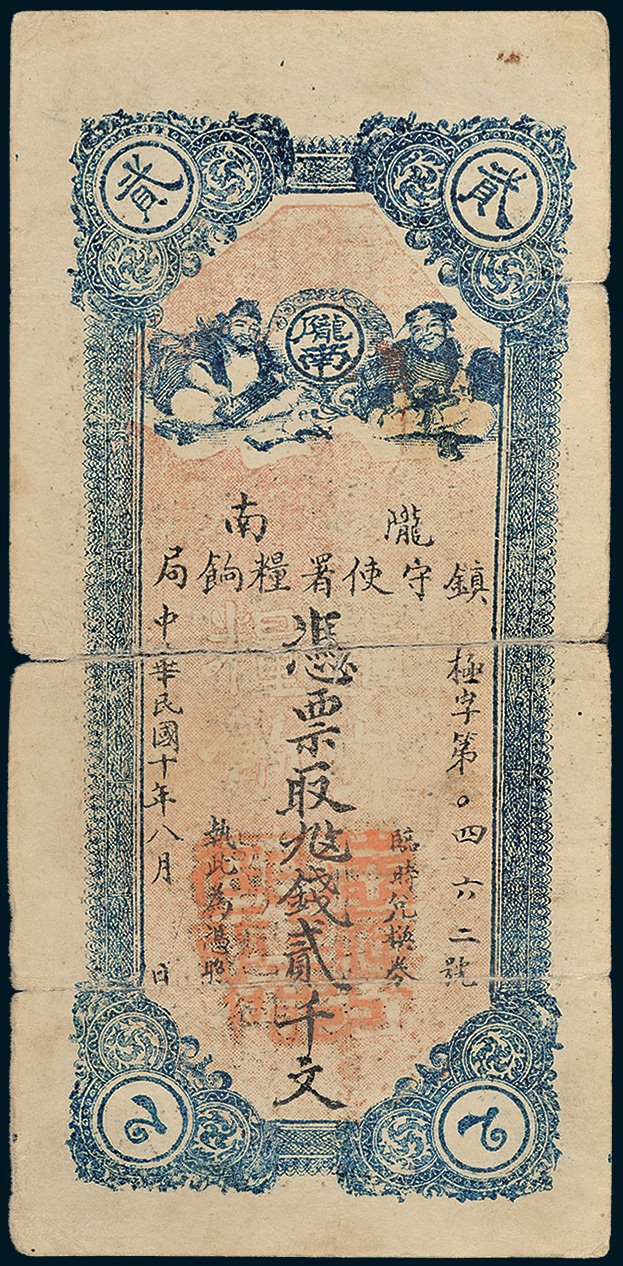 貳
貳
隴南
隴南
鎮守使署糧餉局
極字第〇四六二號
臨時兌換券
憑票取錢貳千文
執此為憑照
中華民國十年八月 日
2
2